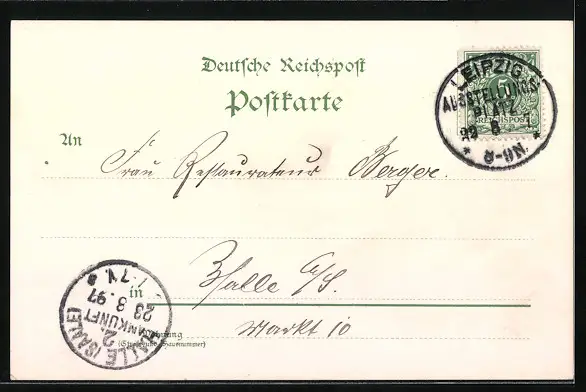 Deutsche Reichspost
Postkarte
LEIPZIG
AUSSTELLUNGS-
PLATZ
23 8
* 8-9N. *
5
REICHSPOST
An
Frau Restaurateur Berger.
in
Halle a/S.
Markt 10
Wohnung
(Straße und Hausnummer)
HALLE (SAALE)
2.
ANKUNFT
23 8. 97